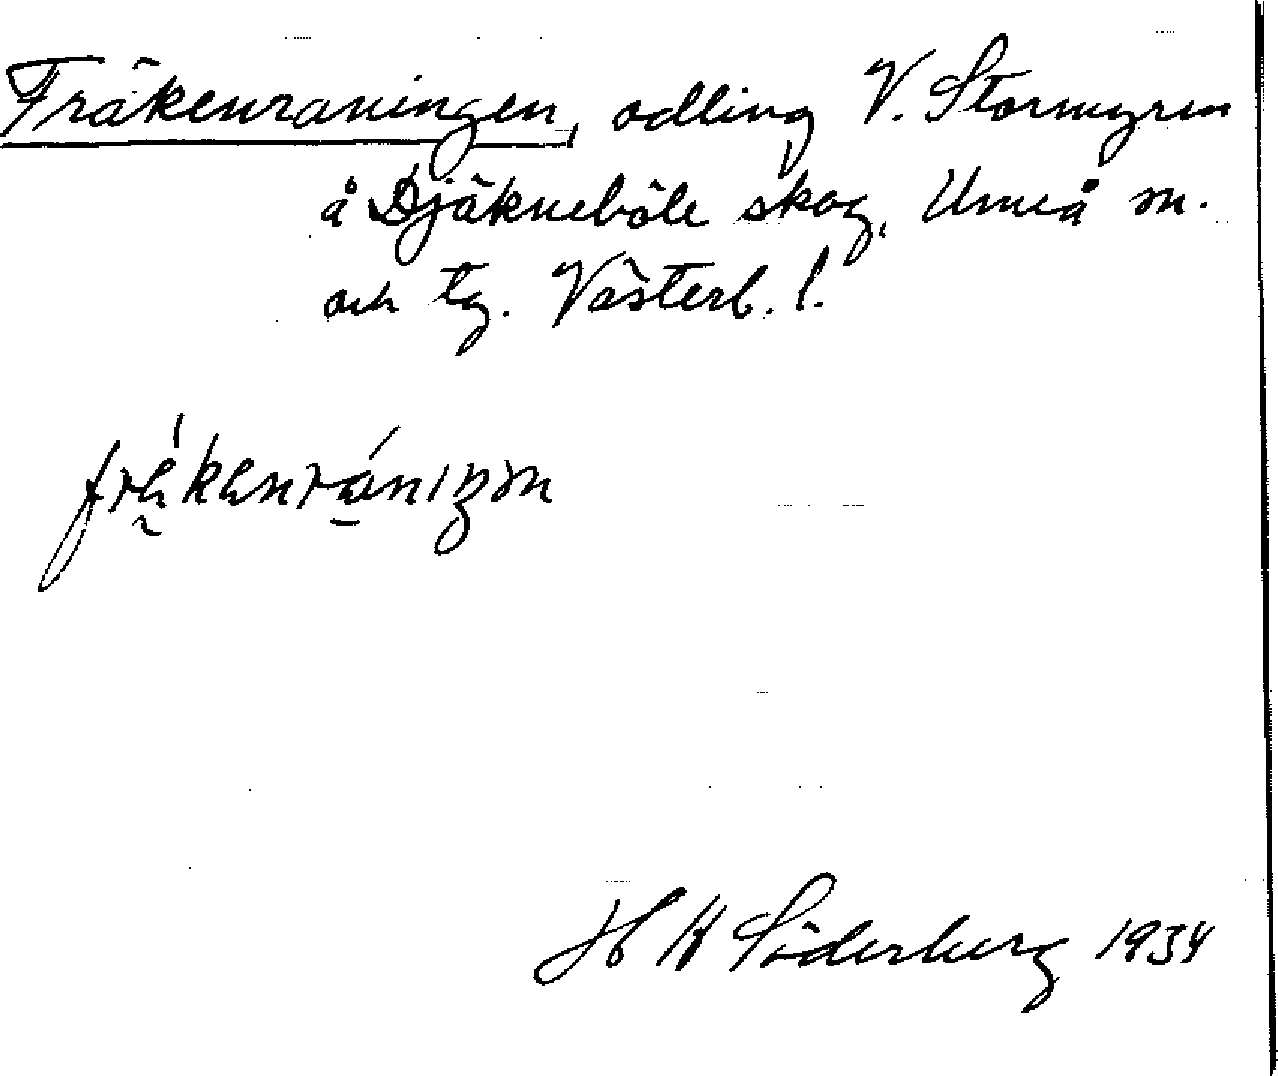 Fräkenraningen, odling V. Stormyren
å Djäkneböle skog, Umeå sn.
och tg. Västerb. l.
H W Söderberg 1934